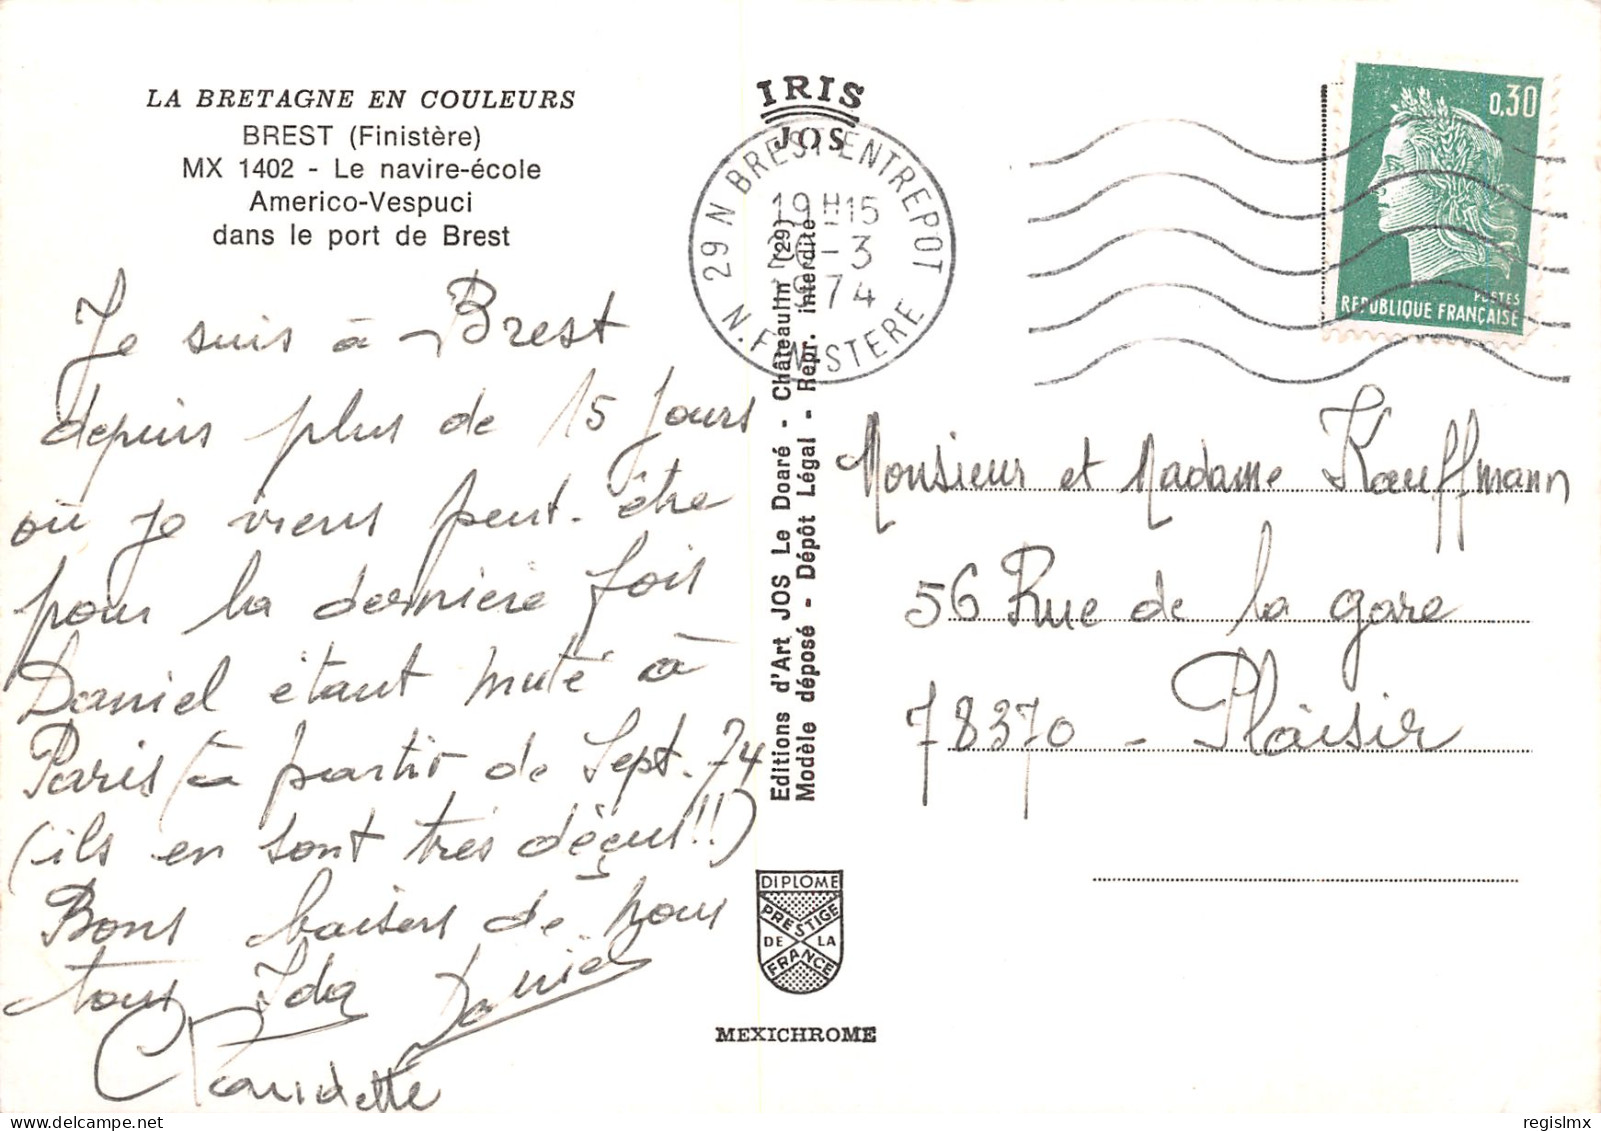 LA BRETAGNE EN COULEURS
BREST (Finistère)
MX 1402 - Le navire-école
Americo-Vespuci
dans le port de Brest
Je suis à Brest
depuis plus de 15 jours
où je viens peut-être
pour la dernière fois
Daniel étant muté à
Paris à partir de Sept. 74
(ils en sont très déçus!!)
Bons baisers de nous
tous Ida Daniel
Claudette
IRIS
JOS
29 N BREST ENTREPOT
19H15
-3
1974
N. FINISTERE
Editions d'Art JOS Le Doaré - Châteaulin (29)
Modèle déposé - Dépôt Légal - Repr. interdite
DIPLOME
PRESTIGE
DE LA
FRANCE
MEXICHROME
0,30
POSTES
REPUBLIQUE FRANÇAISE
Monsieur et Madame Kauffmann
56 Rue de la gare
78370 - Plaisir
regislmx